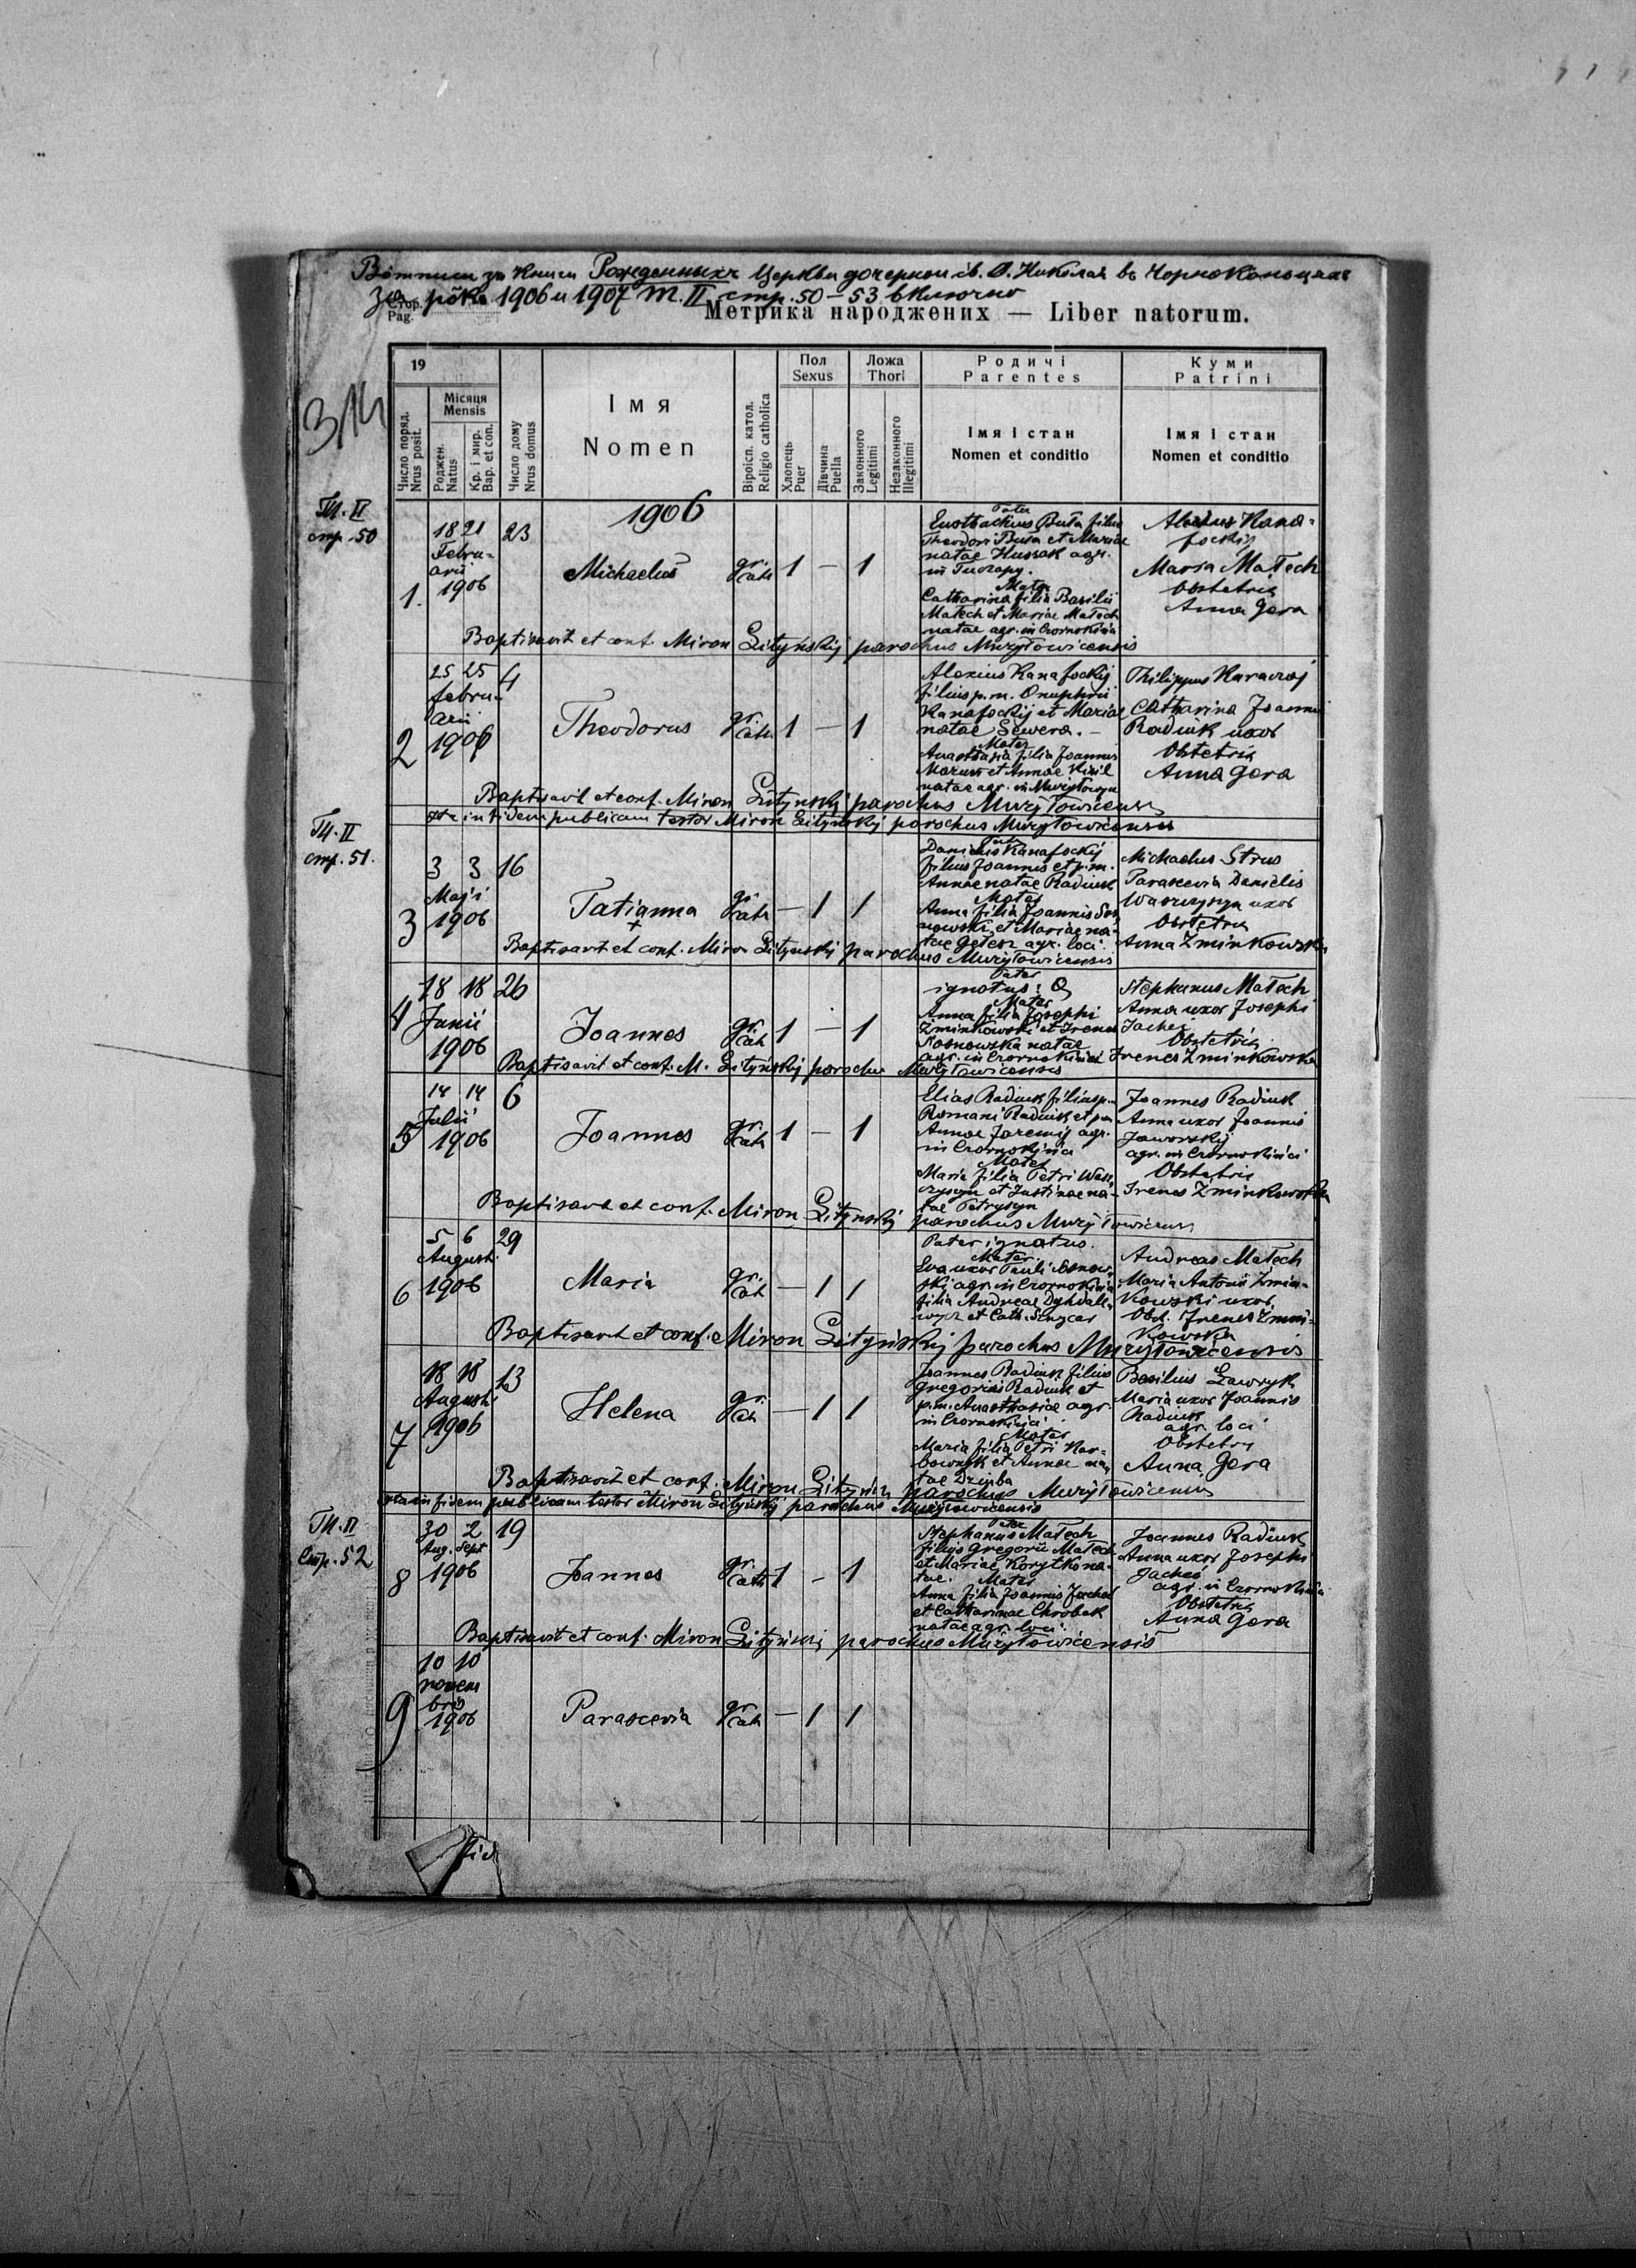 за Книги Рожденныхъ Церкви дочерной св. О. Николая въ
за 1906 и 1907 Т. II стр. 50 – 53 включно
Стор.
Pag.
Метрика народжених — Liber natorum.
314
19
Число поряд.
Nrus posit.
Місяця
Mensis
Роджен.
Natus
Кр. і мир.
Bap. et con.
Число дому
Nrus domus
Імя
Nomen
Віроісп. катол.
Religio catholica
Пол
Sexus
Хлопець
Puer
Дівчина
Puella
Ложа
Thori
Законного
Legitimi
Незаконного
Illegitimi
Родичі
Parentes
Імя і стан
Nomen et conditio
Куми
Patrini
Імя і стан
Nomen et conditio
1906
Т. II
стр. 50
1.
18 21
Febru-
arii
1906
23
Michaelus
gr. cath
1 — 1
Pater
Eustachius Buła filius
Theodori Buła et Mariae
natae Hussak agr.
in Tuczapy.
Mater
Catharina filia Basilii
Małech et Mariae Małech
natae agr. in Czornokińci
Alexius Kana-
fockij
Maria Małech
Obstetrix
Anna Gera
Baptisavit et conf. Miron Lityńskij parochus Mużyłowicensis
2
25 25
febru-
arii
1906
4
Theodorus
gr. cath
1 — 1
Alexius Kanafockij
filius p.m. Onuphrii
Kanafockij et Mariae
natae Sewera. —
Mater
Anastasia filia Joannis
et Annae
natae agr. in
Philippus
Catharina Joannis
Radiuk uxor
Obstetrix
Anna Gera
Baptisavit et conf. Miron Lityńskij parochus Mużyłowicensis
in fidem publicam testor Miron Lityńskij parochus Mużyłowicensis
Т. II
стр. 51.
3
3 3
Maji
1906
16
Tatianna
+
gr. cath
— 1 1
Pater
Kanafockij
filius Joannis et p.m.
Annae natae Radiuk
Mater
Anna filia Joannis Sos-
nowski et Mariae na-
tae agr. loci.
Michaelus Strus
Parascevia Danielis
Waszczyszyn uxor
Obstetrix
Anna Żminkowska
Baptisavit et conf. Miron Lityńskij parochus Mużyłowicensis
4
18 18
Junii
1906
26
Joannes
gr. cath
1 — 1
Pater
ignotus:
Mater
Anna filia Josephi
Żminkowski et Irenes
Sosnowska natae
agr. in Czornokińci
Stephanus Małech
Anna uxor Josephi
Jacheć
Obstetrix
Irenes Żminkowska
Baptisavit et conf. M. Lityńskij parochus Mużyłowicensis
5
14 14
Julii
1906
6
Joannes
gr. cath
1 — 1
Elias Radiuk filius p.m.
Romani Radiuk et p.m.
Annae Jaremij agr.
in Czornokińci
Mater
Maria filia Petri Wasz-
czyszyn et Justinae na-
tae Petryszyn
Joannes Radiuk
Anna uxor Joannis
Jaworskij
agr. in Czornokińci
Obstetrix
Irenes Żminkowska
Baptisavit et conf. Miron Lityńskij parochus Mużyłowicensis
6
5 6
Augusti
1906
29
Maria
gr. cath
— 1 1
Pater ignotus.
Mater.
Eva uxor Pauli Sosnow-
ski agr. in Czornokińci
filia Andreae
et Cath.
Andreas Małech
Maria Antonii Żmin-
kowski uxor
Obst. Irenes Żmin-
kowska
Baptisavit et conf. Miron Lityńskij parochus Mużyłowicensis
7
18 18
Augusti
1906
13
Helena
gr. cath
— 1 1
Joannes Radiuk filius
Gregorii Radiuk et
p.m. Anasthasiae agr.
in Czornokińci
Mater
Maria filia Petri Har-
bownyk et Annae na-
tae Dziuba
Basilius Ławryk
Maria uxor Joannis
Radiuk
agr. loci
Obstetrix
Anna Gera
Baptisavit et conf. Miron Lityńskij parochus Mużyłowicensis
in fidem publicam testor Miron Lityńskij parochus Mużyłowicensis
Т. II
Стр. 52
8
30 2
Aug. Sept
1906
19
Joannes
gr. cath
1 — 1
Pater
Stephanus Małech
filius Gregorii Małech
et Mariae Korytko na-
tae. Mater
Anna filia Joannis Jacheć
et Catharinae Chrobak
natae agr. loci.
Joannes Radiuk
Anna uxor Josephi
Jacheć
agr. in Czornokińci
Obstetrix
Anna Gera
Baptisavit et conf. Miron Lityńskij parochus Mużyłowicensis
9
10 10
novem
bris
1906
Parascevia
gr. cath
— 1 1